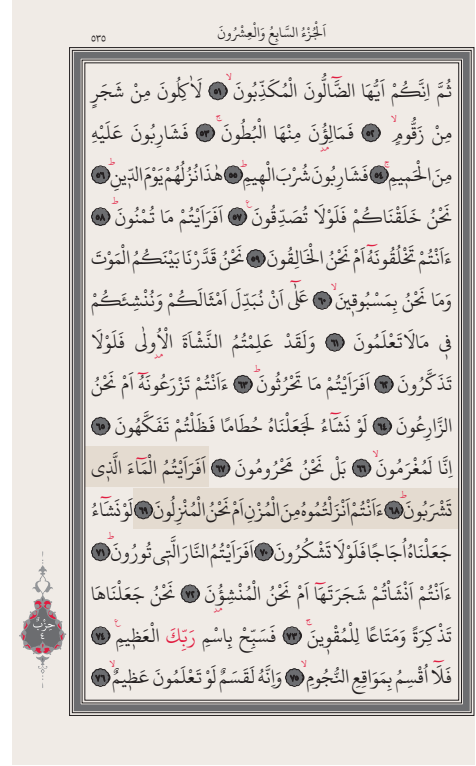 اَلْجُزْءُ السَّابِعُ وَالْعِشْرُونَ
٥٣٥
ثُمَّ اِنَّكُمْ اَيُّهَا الضَّٓالُّونَ الْمُكَذِّبُونَۙ ﴿٥١﴾ لَاٰكِلُونَ مِنْ شَجَرٍ
مِنْ زَقُّومٍۙ ﴿٥٢﴾ فَمَالِؤُ۫نَ مِنْهَا الْبُطُونَۚ ﴿٥٣﴾ فَشَارِبُونَ عَلَيْهِ
مِنَ الْحَم۪يمِۚ ﴿٥٤﴾ فَشَارِبُونَ شُرْبَ الْه۪يمِۜ ﴿٥٥﴾ هٰذَا نُزُلُهُمْ يَوْمَ الدّ۪ينِۜ ﴿٥٦﴾
نَحْنُ خَلَقْنَاكُمْ فَلَوْلَا تُصَدِّقُونَ ﴿٥٧﴾ اَفَرَاَيْتُمْ مَا تُمْنُونَۜ ﴿٥٨﴾
ءَاَنْتُمْ تَخْلُقُونَهُٓ اَمْ نَحْنُ الْخَالِقُونَ ﴿٥٩﴾ نَحْنُ قَدَّرْنَا بَيْنَكُمُ الْمَوْتَ
وَمَا نَحْنُ بِمَسْبُوق۪ينَۙ ﴿٦٠﴾ عَلٰٓى اَنْ نُبَدِّلَ اَمْثَالَكُمْ وَنُنْشِئَكُمْ
ف۪ي مَا لَا تَعْلَمُونَ ﴿٦١﴾ وَلَقَدْ عَلِمْتُمُ النَّشْاَةَ الْاُو۫لٰى فَلَوْلَا
تَذَكَّرُونَ ﴿٦٢﴾ اَفَرَاَيْتُمْ مَا تَحْرُثُونَۜ ﴿٦٣﴾ ءَاَنْتُمْ تَزْرَعُونَهُٓ اَمْ نَحْنُ
الزَّارِعُونَ ﴿٦٤﴾ لَوْ نَشَٓاءُ لَجَعَلْنَاهُ حُطَامًا فَظَلْتُمْ تَفَكَّهُونَ ﴿٦٥﴾
اِنَّا لَمُغْرَمُونَۙ ﴿٦٦﴾ بَلْ نَحْنُ مَحْرُومُونَ ﴿٦٧﴾ اَفَرَاَيْتُمُ الْمَٓاءَ الَّذ۪ي
تَشْرَبُونَۜ ﴿٦٨﴾ ءَاَنْتُمْ اَنْزَلْتُمُوهُ مِنَ الْمُزْنِ اَمْ نَحْنُ الْمُنْزِلُونَ ﴿٦٩﴾ لَوْ نَشَٓاءُ
جَعَلْنَاهُ اُجَاجًا فَلَوْلَا تَشْكُرُونَ ﴿٧٠﴾ اَفَرَاَيْتُمُ النَّارَ الَّت۪ي تُورُونَۜ ﴿٧١﴾
ءَاَنْتُمْ اَنْشَاْتُمْ شَجَرَتَهَٓا اَمْ نَحْنُ الْمُنْشِؤُ۫نَ ﴿٧٢﴾ نَحْنُ جَعَلْنَاهَا
تَذْكِرَةً وَمَتَاعًا لِلْمُقْو۪ينَۚ ﴿٧٣﴾ فَسَبِّحْ بِاسْمِ رَبِّكَ الْعَظ۪يمِ ﴿٧٤﴾
فَلَٓا اُقْسِمُ بِمَوَاقِعِ النُّجُومِۙ ﴿٧٥﴾ وَاِنَّهُ لَقَسَمٌ لَوْ تَعْلَمُونَ عَظ۪يمٌۙ ﴿٧٦﴾
حِزْبٌ
٤